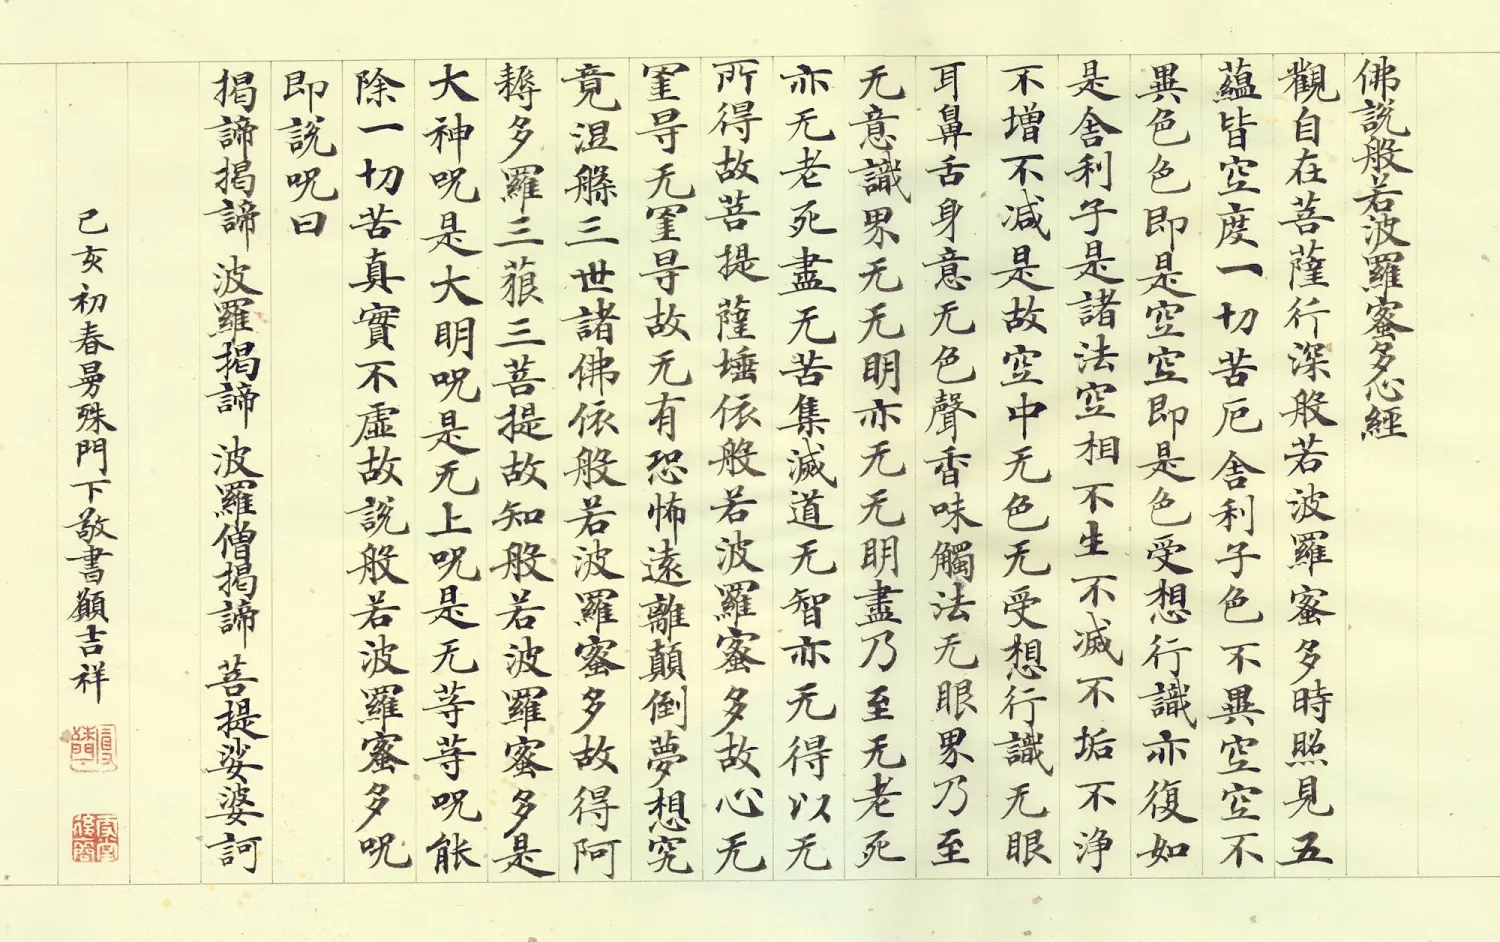 佛說般若波羅蜜多心經
觀自在菩薩行深般若波羅蜜多時照見五
蘊皆空度一切苦厄舍利子色不異空空不
異色色即是空空即是色受想行識亦復如
是舍利子是諸法空相不生不滅不垢不淨
不增不減是故空中无色无受想行識无眼
耳鼻舌身意无色聲香味觸法无眼界乃至
无意識界无无明亦无无明盡乃至无老死
亦无老死盡无苦集滅道无智亦无得以无
所得故菩提薩埵依般若波羅蜜多故心无
罣㝵无罣㝵故无有恐怖遠離顛倒夢想究
竟涅槃三世諸佛依般若波羅蜜多故得阿
耨多羅三藐三菩提故知般若波羅蜜多是
大神呪是大明呪是无上呪是无等等呪能
除一切苦真實不虛故說般若波羅蜜多呪
即說呪曰
揭諦揭諦 波羅揭諦 波羅僧揭諦 菩提娑婆訶
己亥初春曼殊門下敬書願吉祥